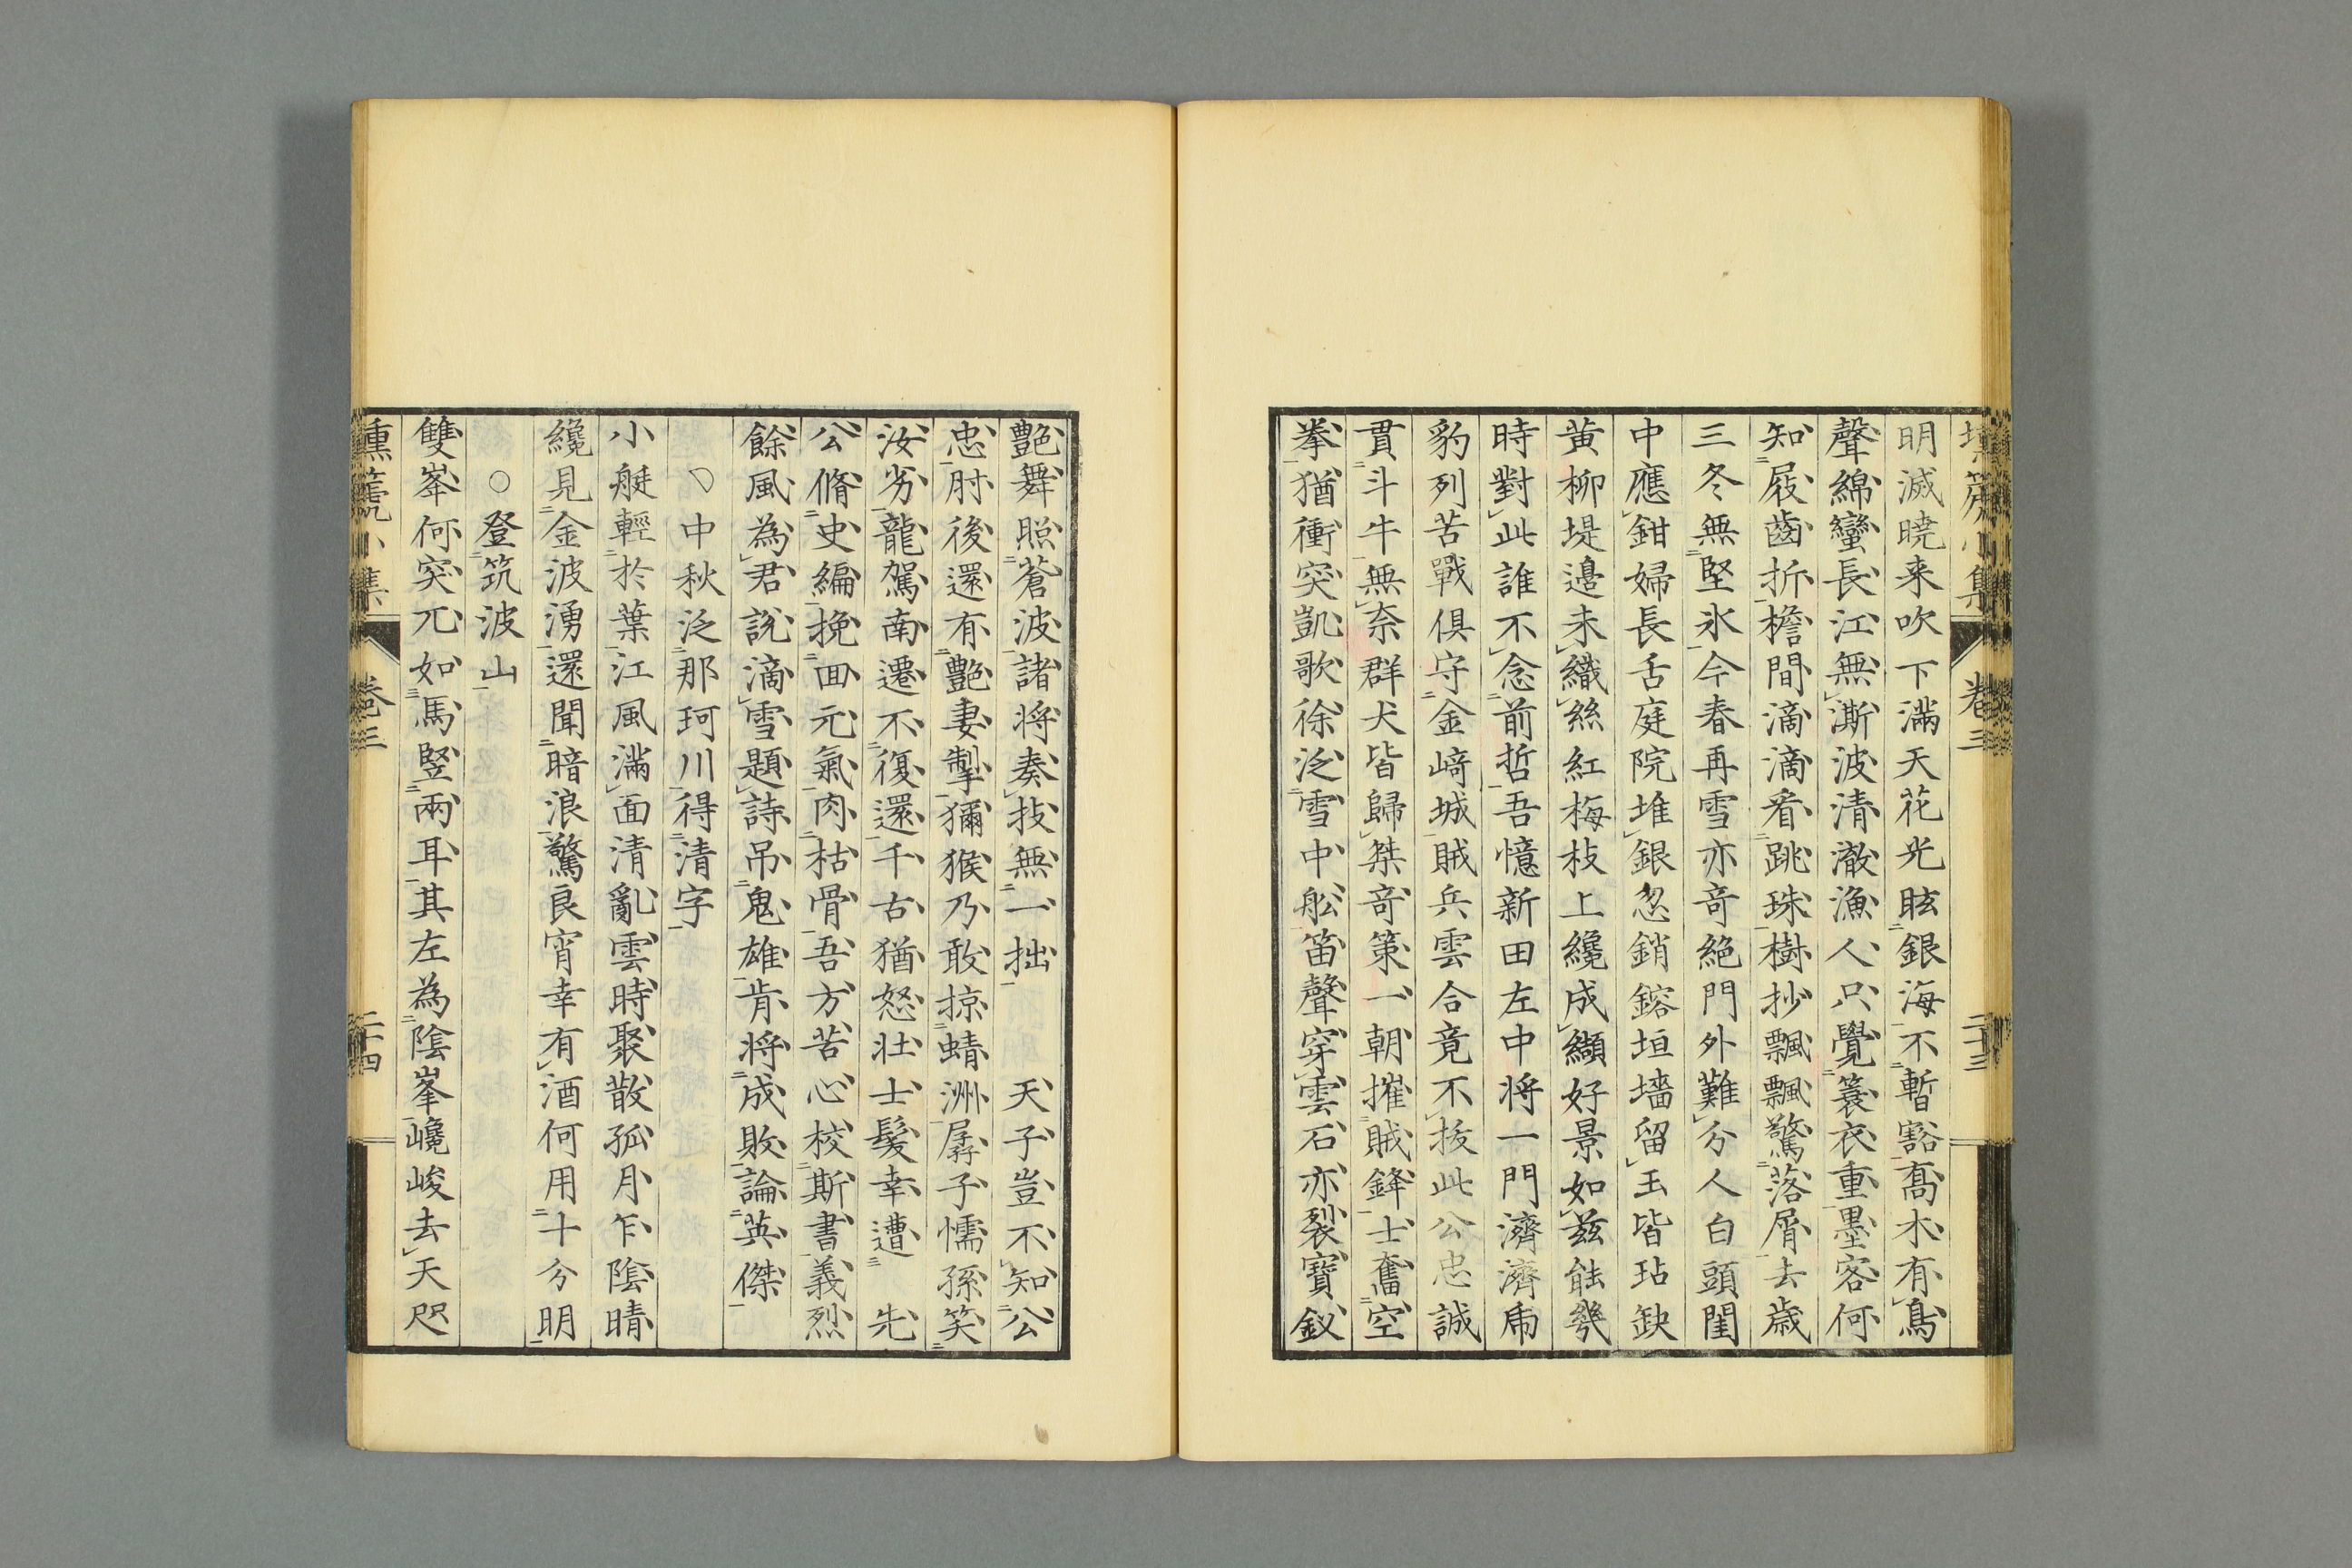 塤篪小集　卷三　二十三
明滅曉来吹下滿天花光眩銀海不暫豁喬木有鳥
聲綿蠻長江無澌波清澈漁人只覺蓑衣重墨客何
知屐齒折檐間滴滴看跳珠樹抄飄飄驚落屑去歳
三冬無堅氷今春再雪亦竒絕門外難分人白頭閨
中應鉗婦長舌庭院堆銀忽銷鎔垣墻留玉皆玷缺
黄柳堤邉未織絲紅梅枝上纔成纈好景如玆能幾
時對此誰不念前哲吾憶新田左中将一門濟濟虎
豹列苦戰俱守金﨑城賊兵雲合竟不拔此公忠誠
貫斗牛無奈群犬皆歸桀竒策一朝摧賊鋒士奮空
拳猶衝突凱歌徐泛雪中舩笛聲穿雲石亦裂寶釵
艶舞照蒼波諸将奏技無一拙　天子豈不知公
忠肘後還有艶妻掣獼猴乃敢掠蜻洲孱子懦孫笑
汝劣龍駕南遷不復還千古猶怒壮士髪幸遭　先
公脩史編挽回元氣肉枯骨吾方苦心校斯書義烈
餘風為君說滴雪題詩吊鬼雄肯将成敗論英傑
○中秋泛那珂川得清字
小艇輕於葉江風滿面清亂雲時聚散孤月乍陰晴
纔見金波湧還聞暗浪驚良宵幸有酒何用十分明
○登筑波山
雙峯何突兀如馬竪兩耳其左為陰峯巉峻去天咫
塤篪小集　卷三　二十四